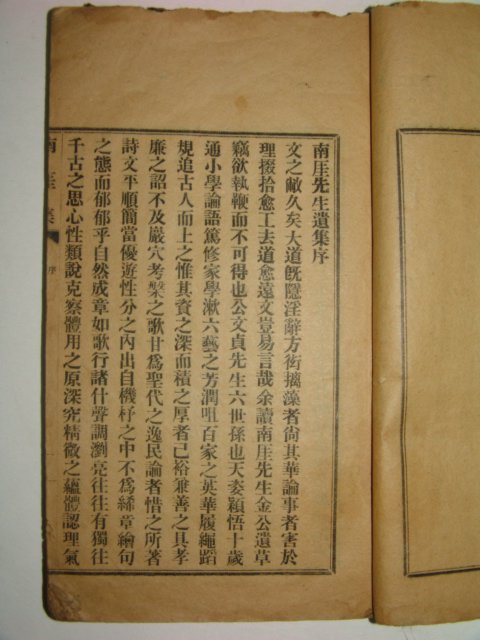 南厓先生遺集序
文之敝久矣大道旣隱淫辭方衒摛藻者尙其華論事者害於
理掇拾愈工去道愈遠文豈易言哉余讀南厓先生金公遺草
竊欲執鞭而不可得也公文貞先生六世孫也天姿穎悟十歲
通小學論語篤修家學漱六藝之芳潤咀百家之英華履繩蹈
規追古人而上之惟其資之深而積之厚者已裕兼善之具孝
廉之詔不及嚴穴考槃之歌甘爲聖代之逸民論者惜之所著
詩文平順簡當優遊性分之內出自機杼之中不爲絺章繪句
之態而郁郁乎自然成章如歌行諸什聲調瀏亮往往有獨往
千古之思心性類說克察體用之原深究精微之蘊體認理氣
南厓集
序